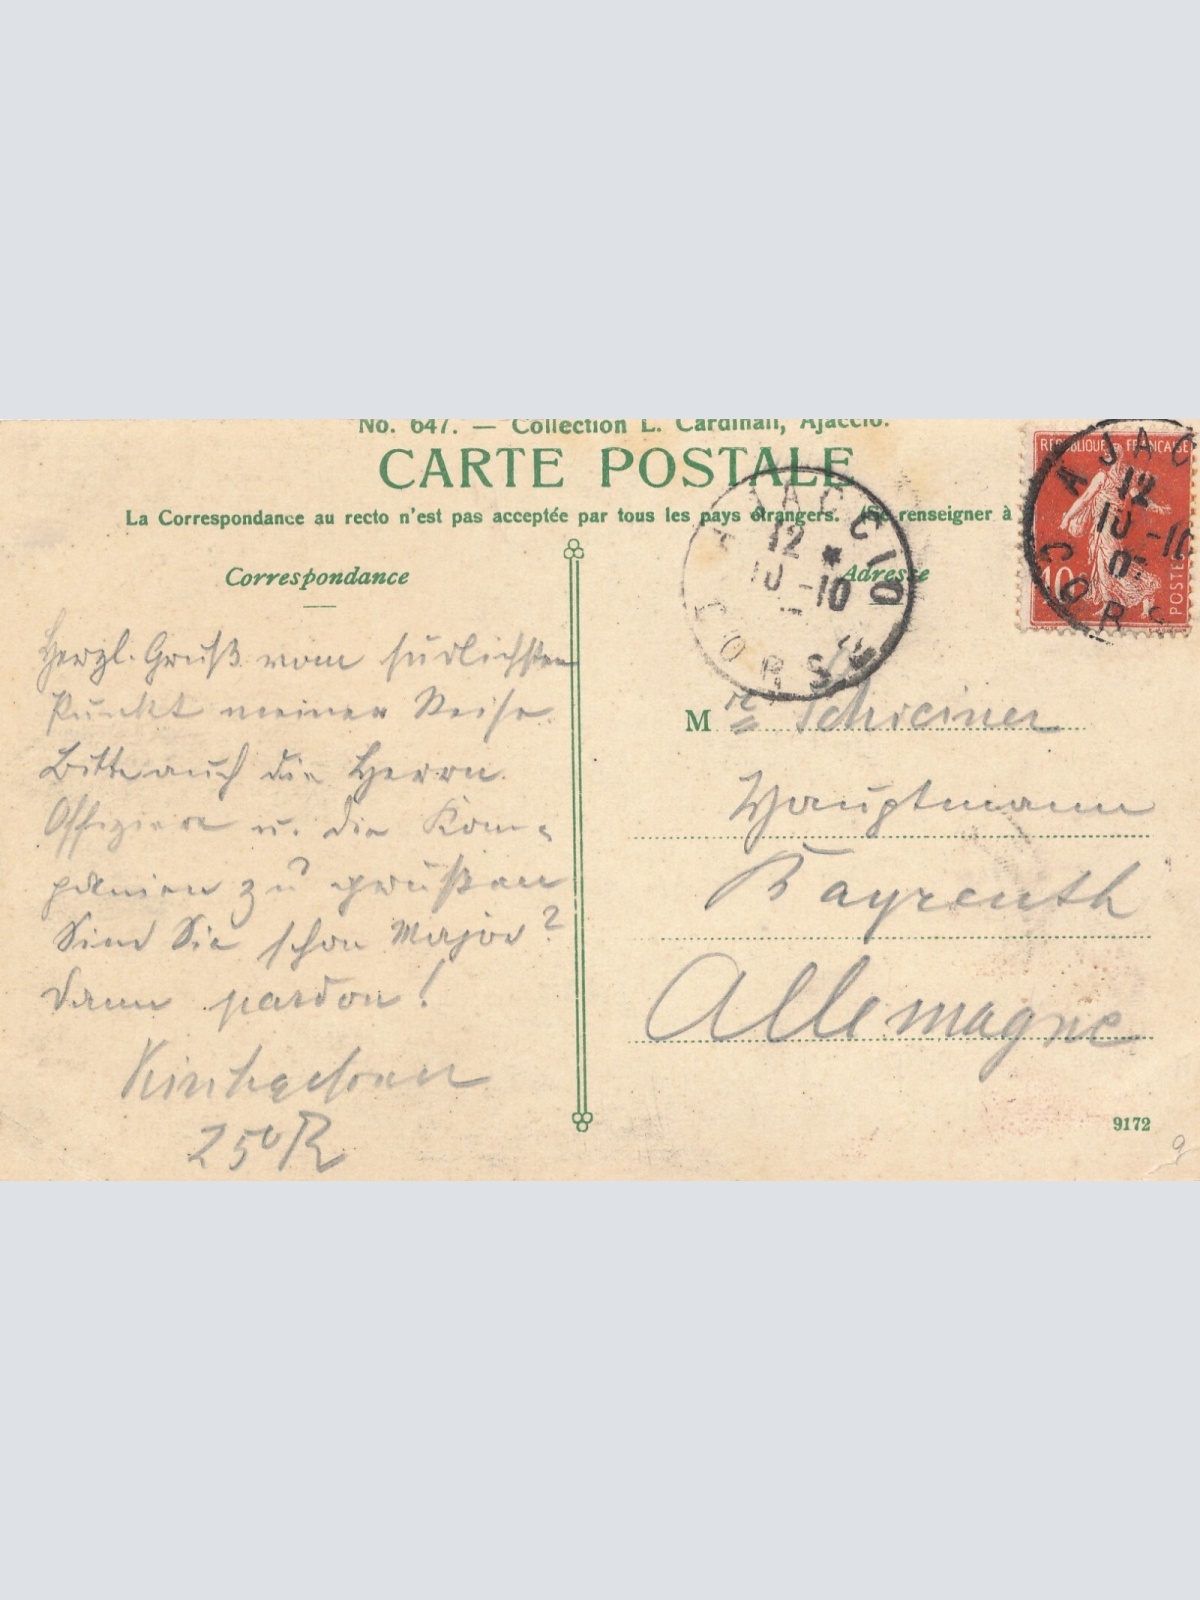 No. 647. — Collection L. Cardinali, Ajaccio.
CARTE POSTALE
La Correspondance au recto n'est pas acceptée par tous les pays étrangers. (Se renseigner à
Correspondance
Herzl. Gruß vom südlichsten
Punkt meiner Reise.
Bitte auch die Herrn
Offiziere u. die Kom-
panien zu grüßen
Sind Sie schon Major?
Dann pardon!
250R
Adresse
M r Schreiner
Hauptmann
Bayreuth
Allemagne
9172
AJACCIO
12 *
10 -10
CORSE
REPUBLIQUE FRANÇAISE
10
POSTES
AJAC
12
10 -10
CORS